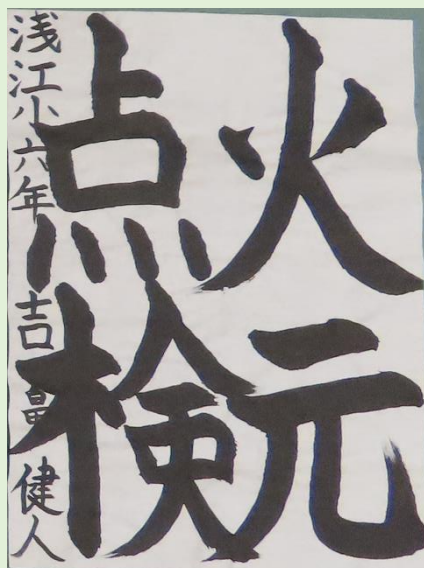 火元
点検
浅江小六年 吉畠健人